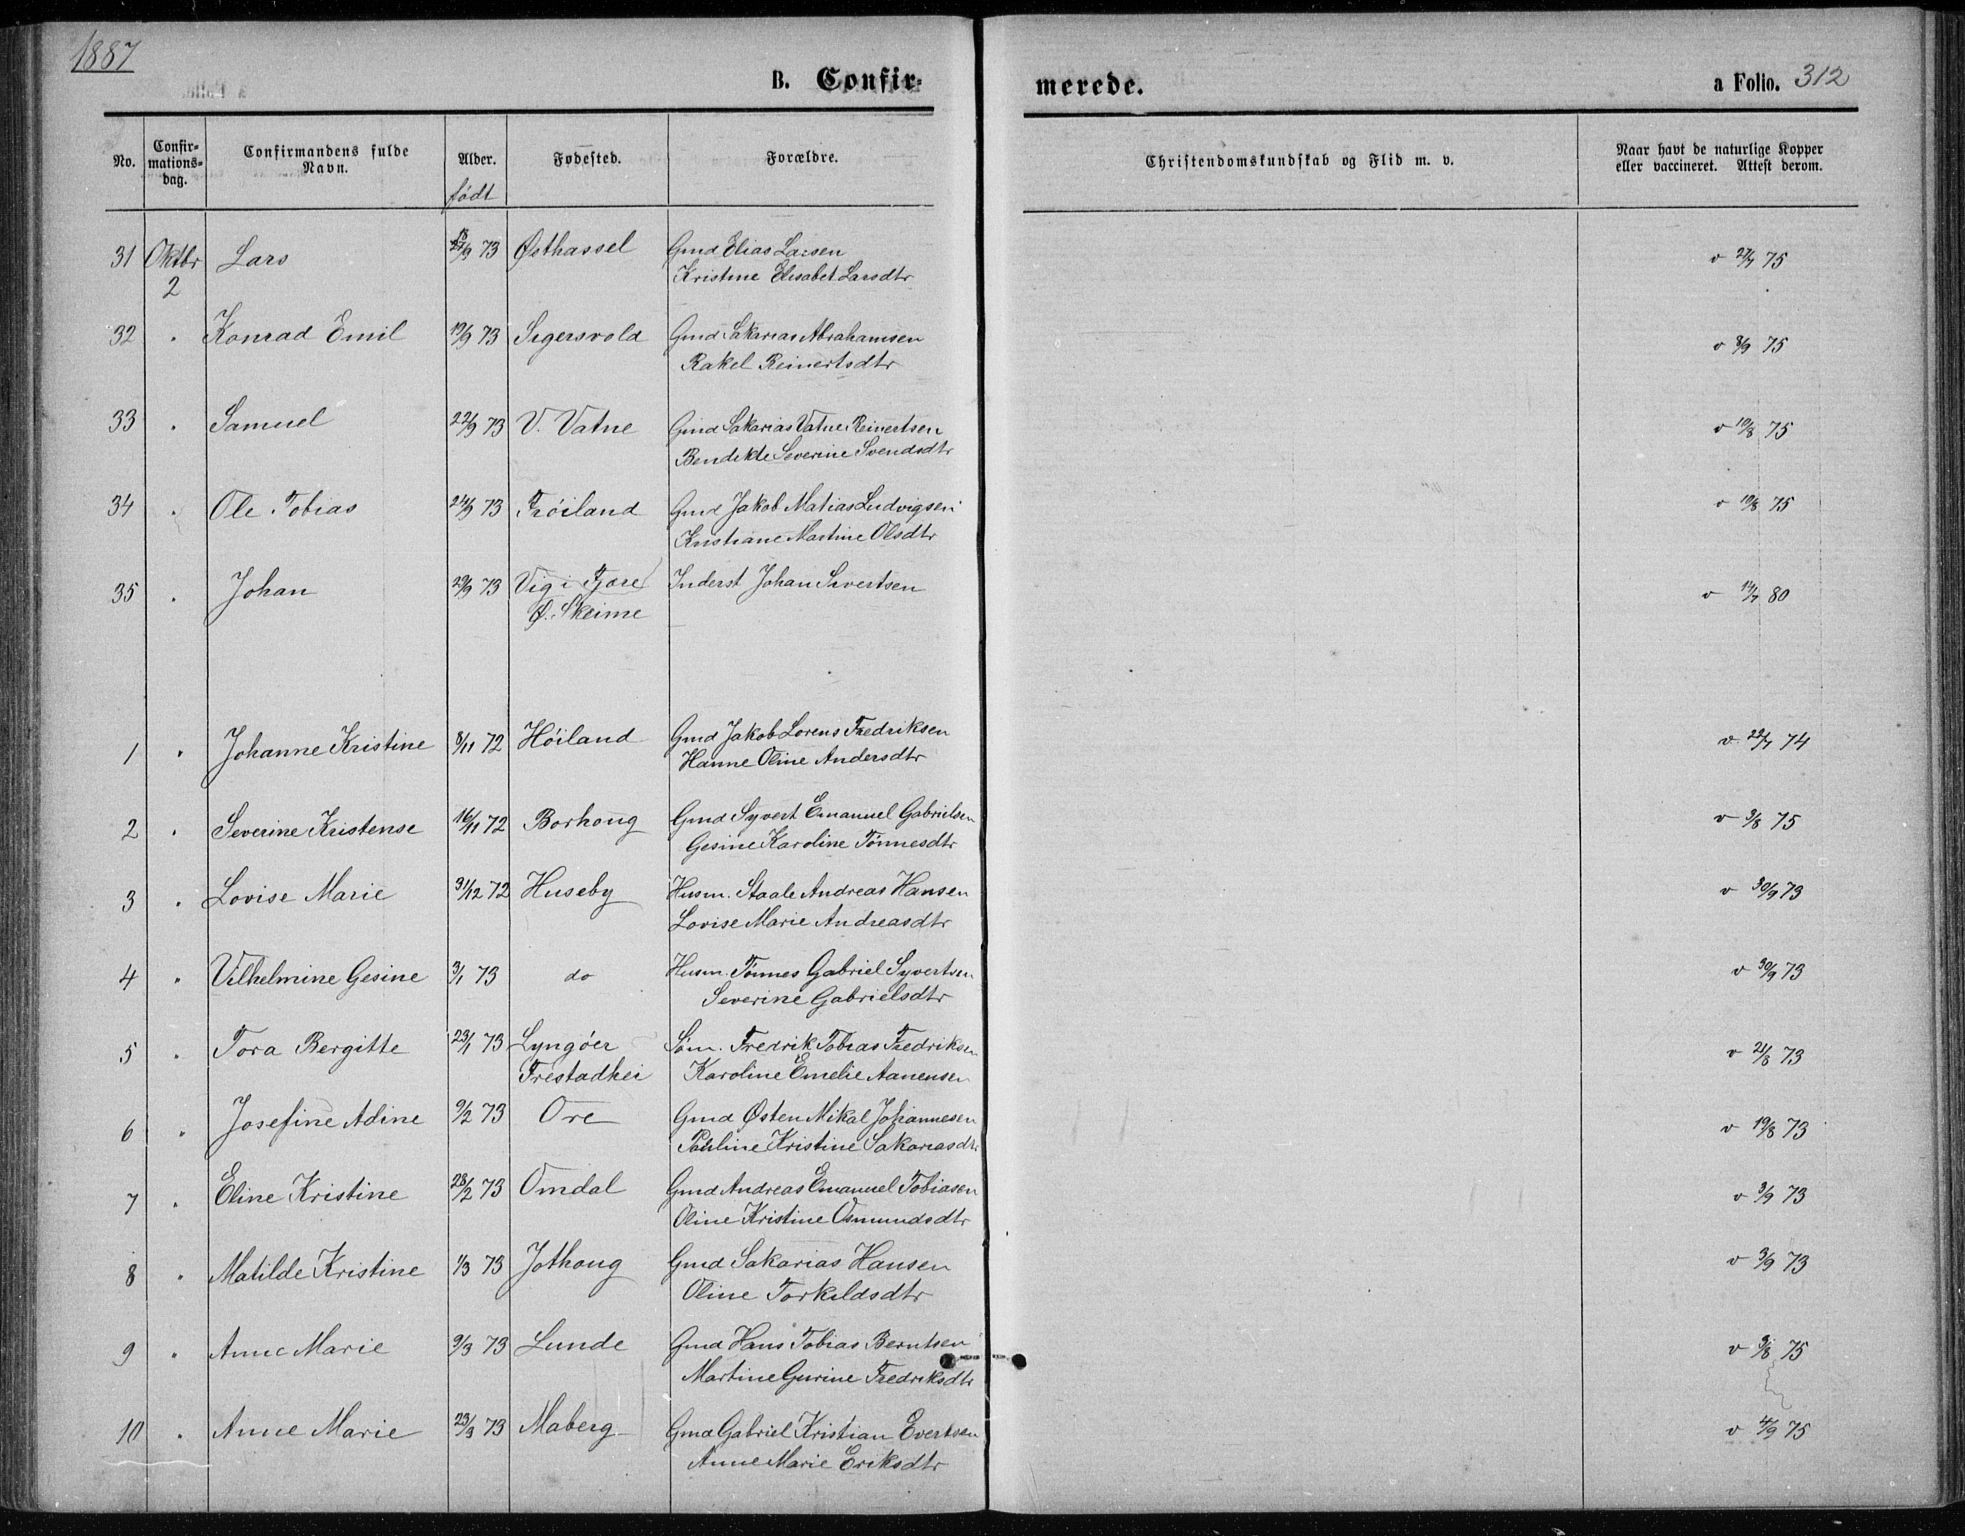 1887
B. Confir-
merede.
a Folio. 312
No.
Confir-
mations-
dag.
Confirmandens fulde
Navn.
Alder.
født
Fødested.
Forældre.
Christendomskundskab og Flid m. v.
Naar havt de naturlige Kopper
eller vaccineret. Attest derom.
31 Oktbr Lars 73 Østhassel Gmd Elias Larsen v 27/7 75
2 Kristine Elisabet Larsdtr
32 " Konrad Emil 19/9 73 Sigersvold Gmd Sakarias Abrahamsen v 8/9 75
Rakel Reinertsdtr
33 " Samuel 22/9 73 V. Vatne Gmd Sakarias Vatne Reinertsen v 10/8 75
Bendikte Severine Svendsdtr
34 " Ole Tobias 24/9 73 Frøiland Gmd Jakob Matias Ludvigsen v 10/8 75
Kristiane Martine Olsdtr
35 " Johan 29/9 73 Vig i Fjære Inderst Johan Sivertsen v 14/7 80
Ø. Skeime
1 " Johanne Kristine 8/11 72 Høiland Gmd Jakob Lorens Fredriksen v 22/7 74
Hanne Oline Andersdtr
2 " Severine Kristense 16/11 72 Borhoug Gmd Syvert Emanuel Gabrielsen v 3/8 75
Gesine Karoline Tønnesdtr
3 " Lovise Marie 31/12 72 Huseby Husm. Staale Andreas Hansen v 30/9 73
Lovise Marie Andreasdtr
4 " Vilhelmine Gesine 3/1 73 do Husm. Tønnes Gabriel Syvertsen v 30/9 73
Severine Gabrielsdtr
5 " Tora Bergitte 23/1 73 Lyngøer Søm. Fredrik Tobias Fredriksen v 21/8 73
Frestadhei Karoline Emelie Aanensen
6 " Josefine Adine 9/2 73 Ore Gmd Østen Mikal Johannesen v 19/8 73
Pauline Kristine Sakariasdtr
7 " Eline Kristine 28/2 73 Omdal Gmd Andreas Emanuel Tobiasen v 3/9 73
Oline Kristine Osmundsdtr
8 " Matilde Kristine 1/3 73 Jothoug Gmd Sakarias Hansen v 3/9 73
Oline Torkildsdtr
9 " Anne Marie 9/3 73 Lunde Gmd Hans Tobias Berntsen v 9/8 75
Martine Gurine Fredriksdtr
10 " Anne Marie 23/3 73 Maberg Gmd Gabriel Kristian Evertsen v 4/9 75
Anne Marie Eriksdtr